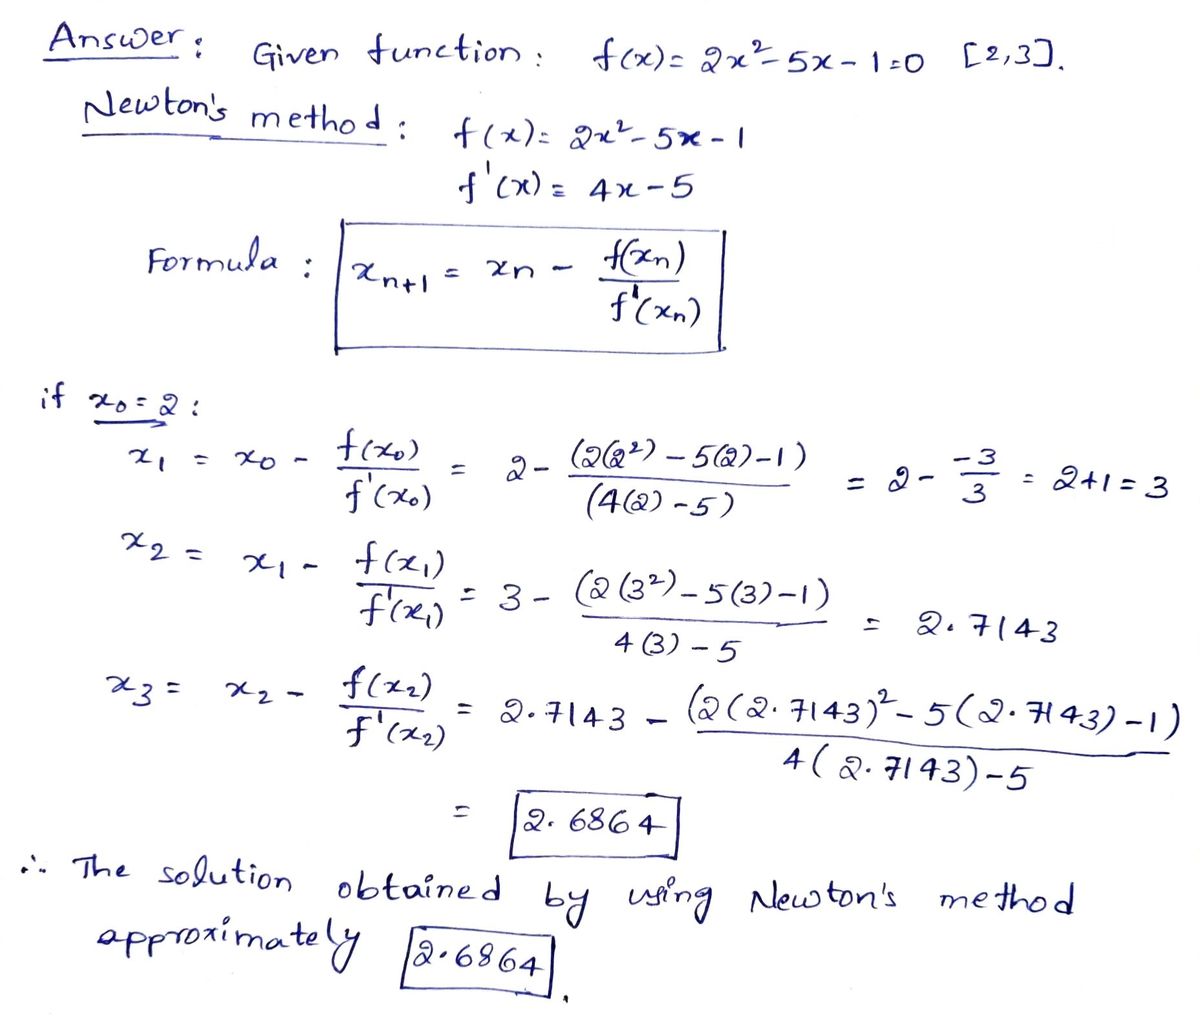 Answer : Given function : f(x) = 2x² - 5x - 1 = 0 [2,3].
Newton's method : f(x) = 2x² - 5x - 1
f'(x) = 4x - 5
Formula : xₙ₊₁ = xₙ - f(xₙ)/f'(xₙ)
if x₀ = 2 :
x₁ = x₀ - f(x₀)/f'(x₀) = 2 - (2(2²) - 5(2) - 1)/(4(2) - 5) = 2 - -3/3 = 2+1 = 3
x₂ = x₁ - f(x₁)/f'(x₁) = 3 - (2(3²) - 5(3) - 1)/4(3) - 5 = 2.7143
x₃ = x₂ - f(x₂)/f'(x₂) = 2.7143 - (2(2.7143)² - 5(2.7143) - 1)/4(2.7143) - 5
= 2.6864
∴ The solution obtained by using Newton's method
approximately 2.6864.